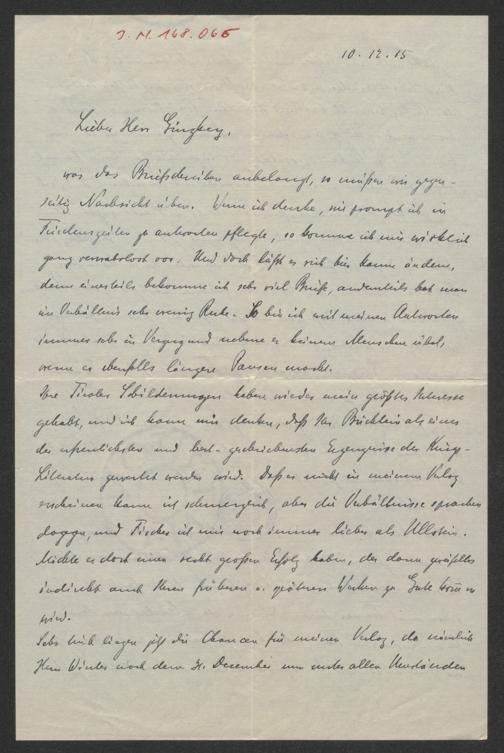 J. N. 168.066
10. 12. 15
Lieber Herr Ginzkey,
was das Briefschreiben anbelangt, so müssen wir gegen-
seitig Nachsicht üben. Wenn ich denke, wie prompt ich in
Friedenszeiten zu antworten pflegte, so komme ich mir wirklich
ganz verwahrlost vor. Und doch läßt es sich hier kaum ändern,
denn einesteils bekomme ich sehr viel Briefe, andernteils hat man
im Verhältnis sehr wenig Ruhe. So bin ich mit meinen Antworten
immer sehr in Verzug und nehme es keinem Menschen übel,
wenn er ebenfalls längere Pausen macht.
Ihre Tiroler Schilderungen haben wieder mein größtes Interesse
gehabt, und ich kann mir denken, daß Ihr Büchlein als eines
der erfreulichsten und best-geschriebensten Erzeugnisse der Kriegs-
Literatur gewertet werden wird. Daß es nicht in meinem Verlag
erscheinen kann ist schmerzlich, aber die Verhältnisse sprachen
dagegen, und Fischer ist mir noch immer lieber als Ullstein.
Möchte es doch einen recht großen Erfolg haben, der dann größtes
indirekt auch Ihren früheren u. späteren Werken zu Gute kommen
wird.
Sehr trüb liegen jetzt die Chancen für meinen Verlag, da nämlich
Herr Winter nach dem 31. Dezember nun unter allen Umständen